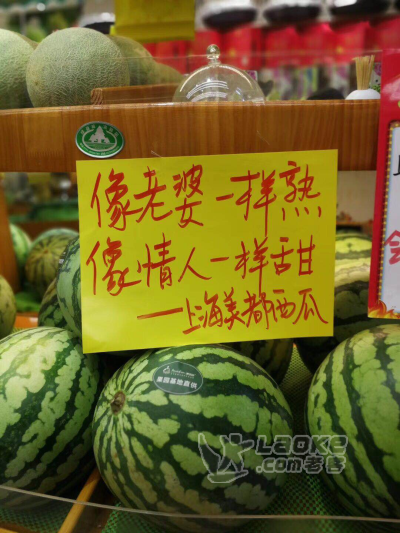 像老婆一样熟
像情人一样甜
—上海美都西瓜
果园基地直供
LAOKE
.com老客